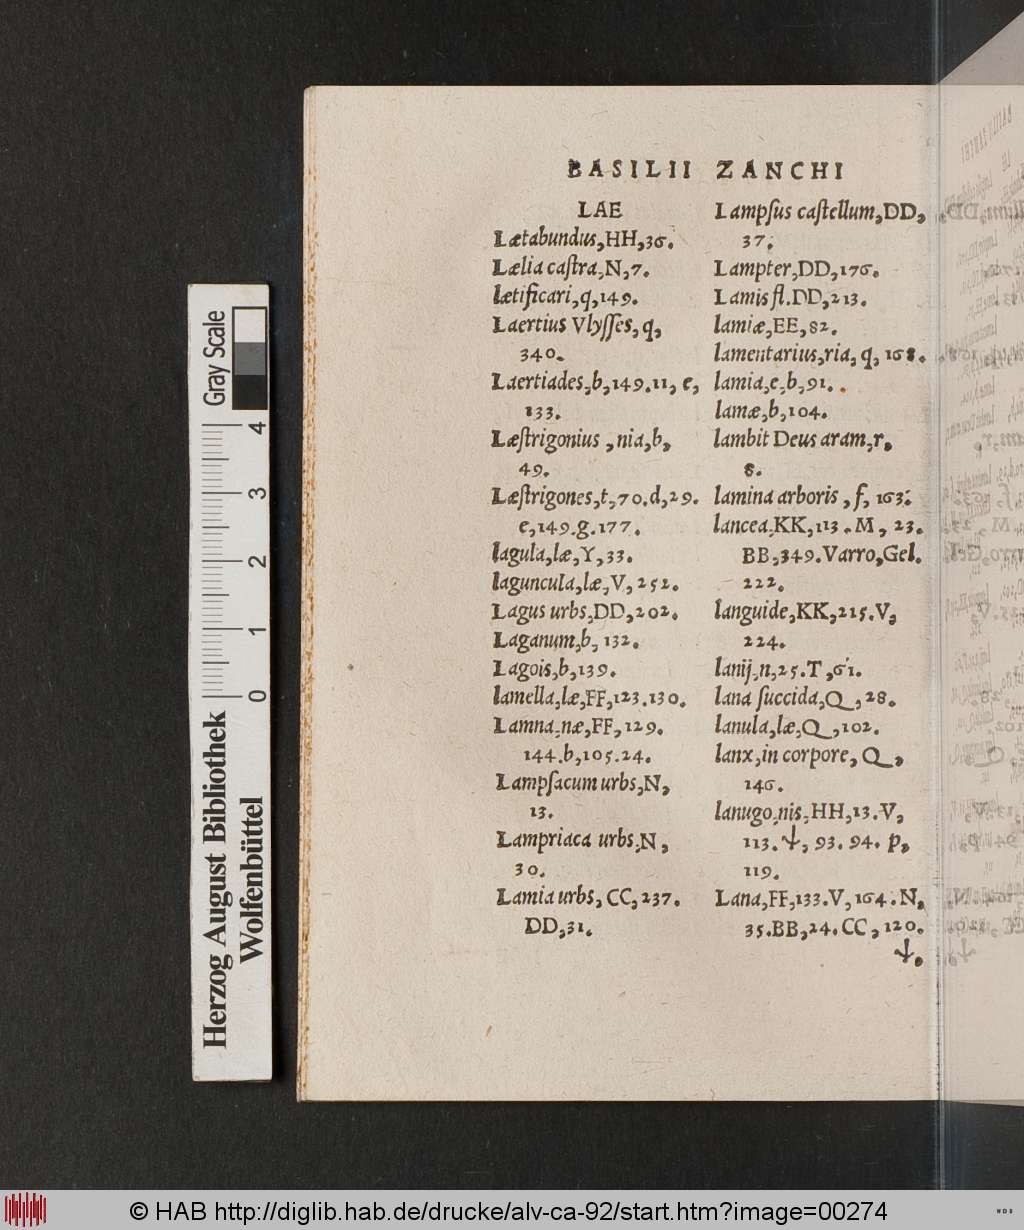 BASILII ZANCHI
LAE
Lætabundus,HH,36.
Lælia caſtra,N,7.
lætificari,q,149.
Laertius Vlyſſes,q,
340.
Laertiades,b,149.11, e,
133.
Læſtrigonius ,nia,b,
49.
Læſtrigones,t,70.d,29.
e,149.g.177.
lagula,læ,Y,33.
laguncula,læ,V,252.
Lagus urbs,DD,202.
Laganum,b, 132.
Lagois,b,139.
lamella,læ,FF,123.130.
Lamna,næ,FF,129.
144.b,105.24.
Lampſacum urbs,N,
13.
Lampriaca urbs,N,
30.
Lamia urbs, CC,237.
DD,31.
Lampſus caſtellum,DD,
37.
Lampter,DD,176.
Lamis fl.DD,213.
lamiæ,EE,82.
lamentarius,ria, q, 168.
lamia,e,b,91.
lamæ,b,104.
lambit Deus aram,r,
8.
lamina arboris ,f, 163.
lancea,KK,113.M, 23.
BB,349.Varro,Gel.
222.
languide,KK,215.V,
224.
lanij,n,25.T,61.
lana ſuccida,Q,28.
lanula,læ,Q,102.
lanx,in corpore, Q,
146.
lanugo,nis,HH,13.V,
113.Ψ, 93. 94. p,
119.
Lana,FF,133.V,164.N,
35.BB,24.CC,120.
Ψ.
Gray Scale
4
3
2
1
0
Herzog August Bibliothek
Wolfenbüttel
© HAB http://diglib.hab.de/drucke/alv-ca-92/start.htm?image=00274